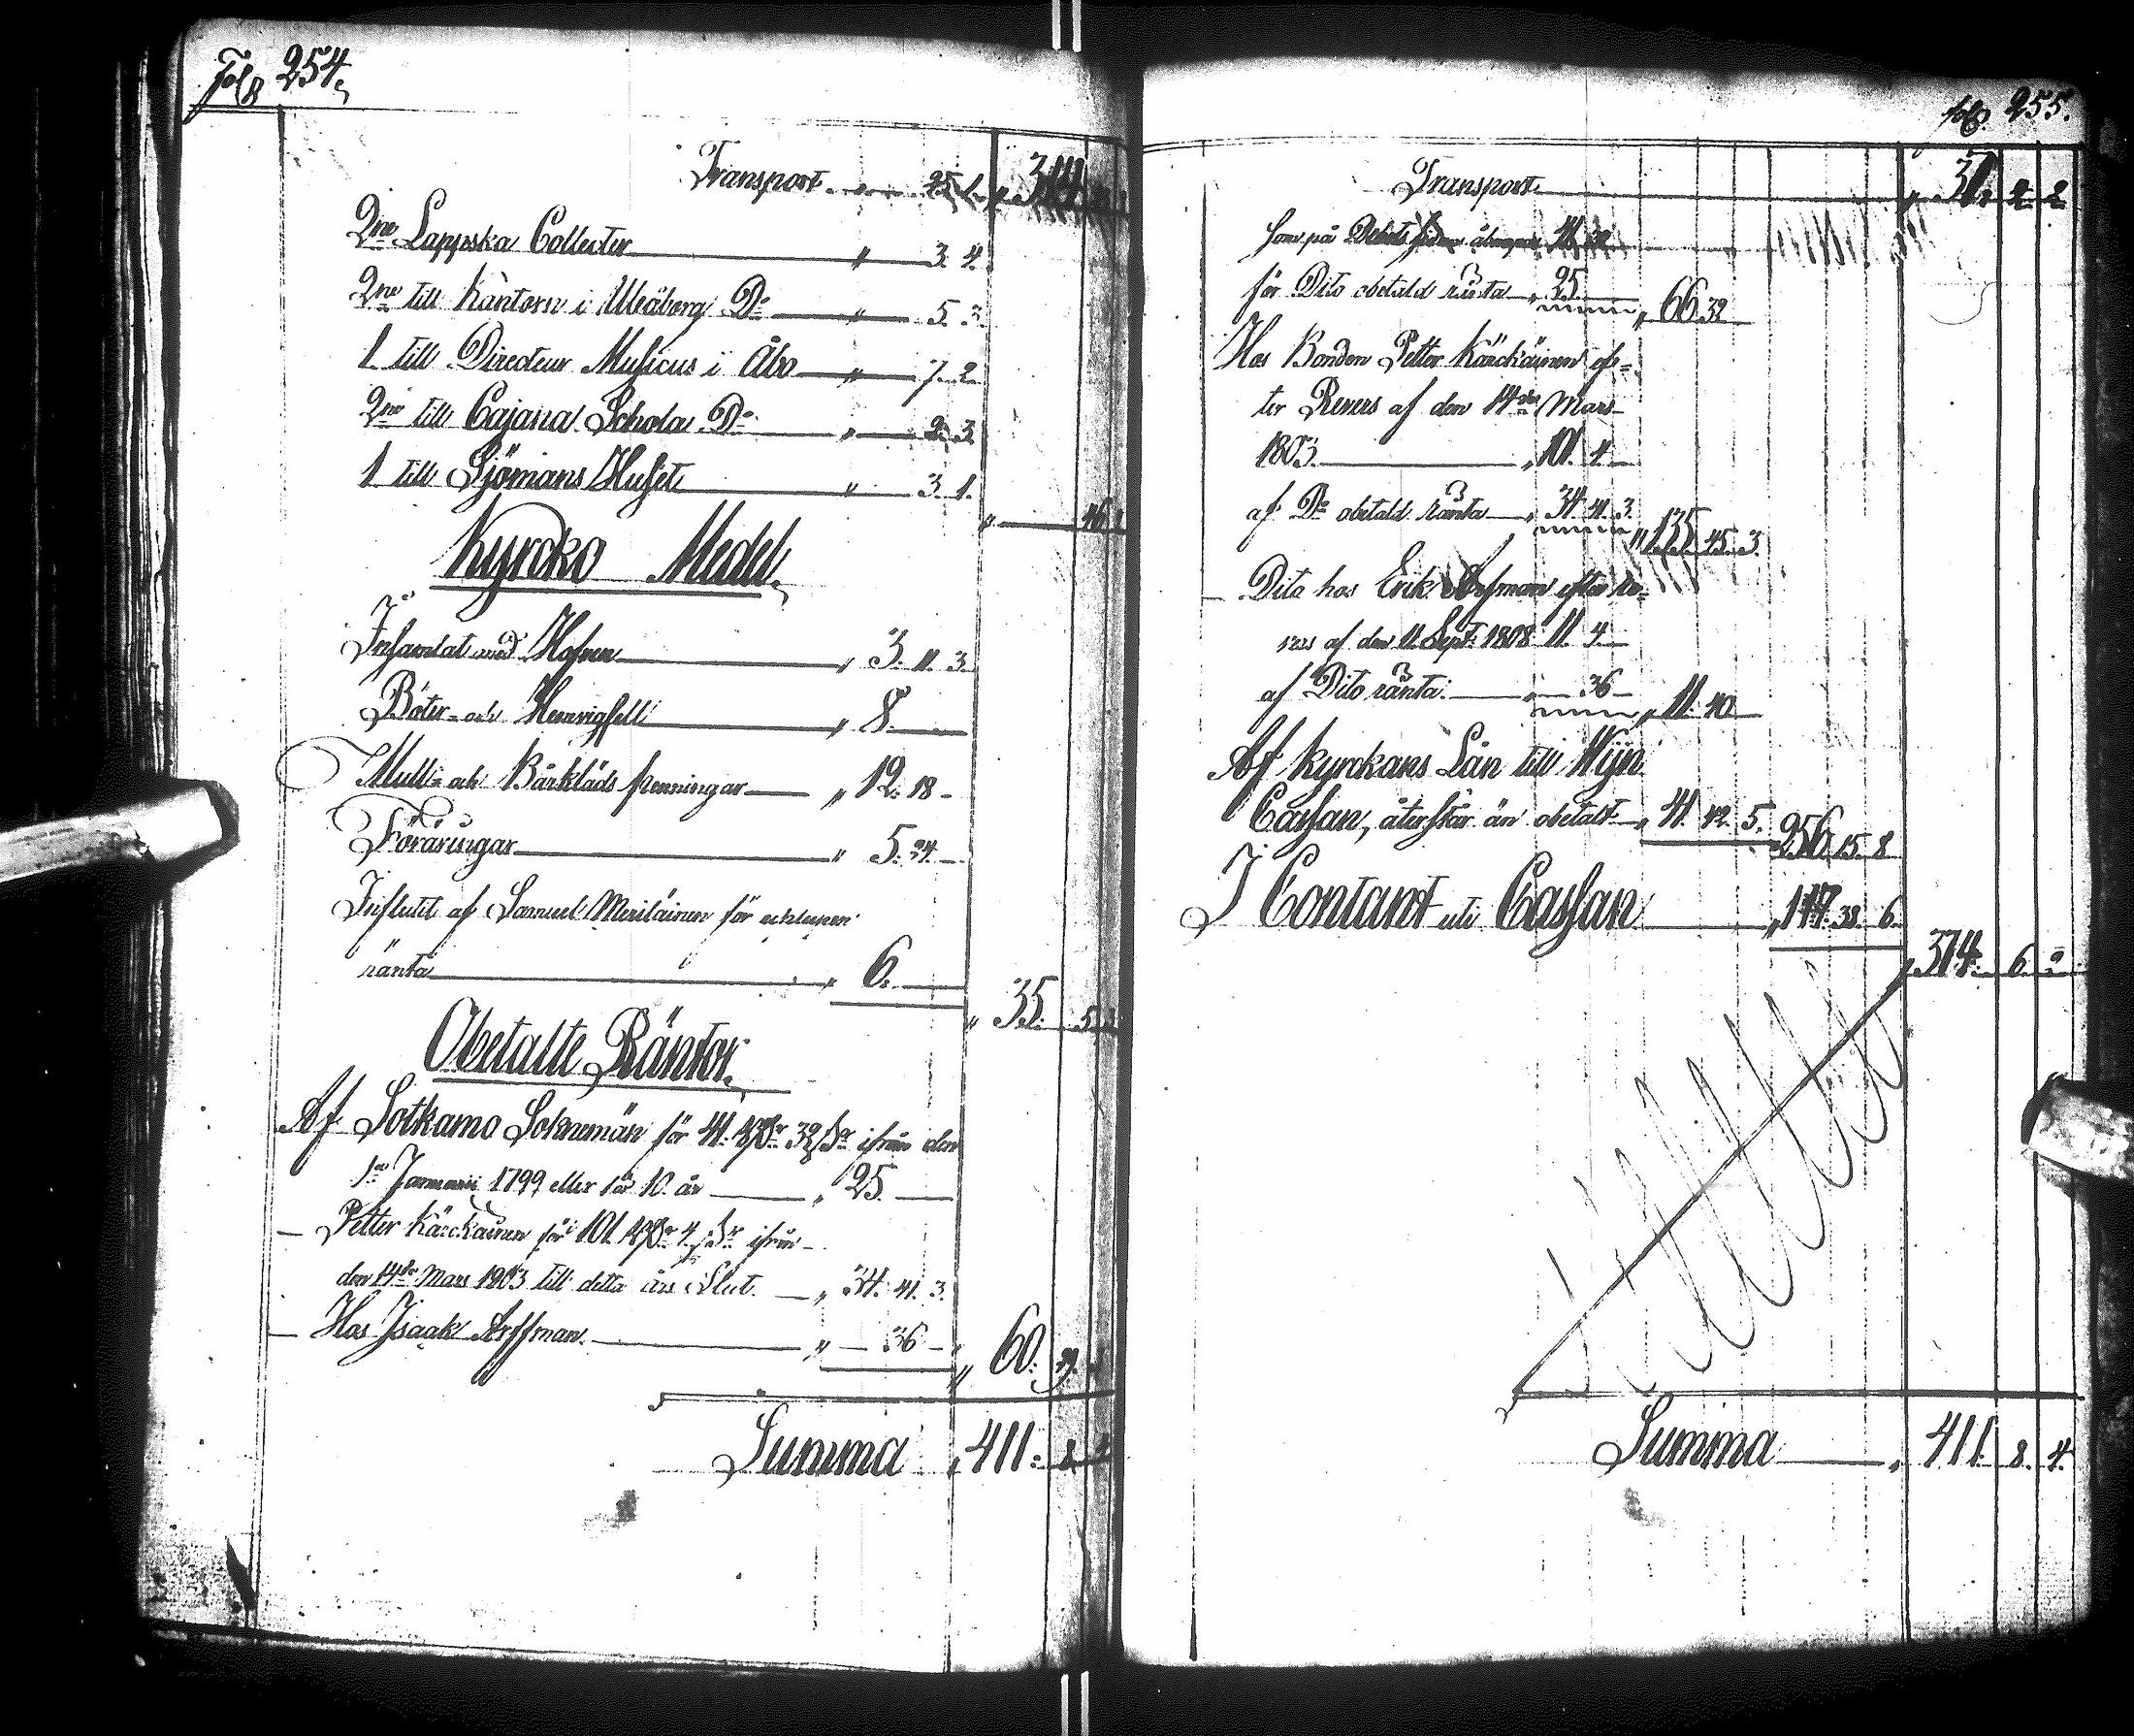 Fol 254.
Transport 25. 1. 314.
2ne Lappska Collecter " 3. 4.
2ne till Kantorn i Uleåborg Do " 5. 3.
1 till Directeur Musicus i Åbo " 7. 2
2ne till Cajana Schola Do " 2. 3
1 till Sjömans Huset " 3. 1.
" 46.
Kyrcko Medel.
Insamlat med Hofven " 3. 11. 3.
Böter och " 8.
Mull- och Bårkläds penningar " 12. 18 -
Föräringar " 5. 24. -
Influtit af Samuel Meriläinen för
ränta " 6.
" 35. 5.
Obetalte Räntor.
Af Sotkamo Soknemän för 41 Rdr 32 ifrån den
1a Januarii 1799 eller för 10. år " 25. -
- Petter Kärckäinen för 101 Rdr 4 ifrån
den 14de Mars 1803 till detta års Slut. - " 34. 41. 3.
- Hos Isaak Arffman " - 36 -
" 60. 29.
Summa " 411. 8.
fol. 255.
Transport " 2 2
som på Debets sidan 41 32
för Dito obetald ränta " 25 " 66 32
Hos Bonden Petter Kärckäinen ef-
ter Revers af den 14de Mars
1803 " 101. 4 -
af Do obetald ränta " 34 41. 3. " 135. 45. 3.
- Dito hos Erik Arfman efter re-
vers af den 11 Sept. 1808 11. 4 -
af Dito ränta " - 36 - " 11. 40 -
Af Kyrckans Lån till Wijn
Cassan, återstår än obetalt " 41. 42. 5. 256 15. 8
I Contant uti Cassan " 117. 38. 6.
" 374. 6. 2
Summa " 411. 8. 4.